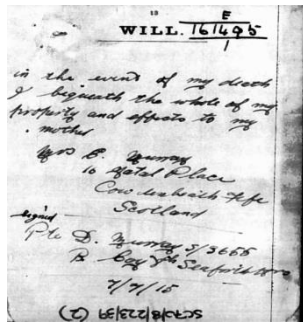 13
WILL. E
161495
1
in the event of my death
I bequeath the whole of my
property and effects to my
mother
Mrs E. Murray
10 Natal Place
Cowdenbeath Fife
Scotland
signed
Pte D. Murray S/3655
B Coy 7th Seaforth
7/7/15
SC70/8/223/39 (2)